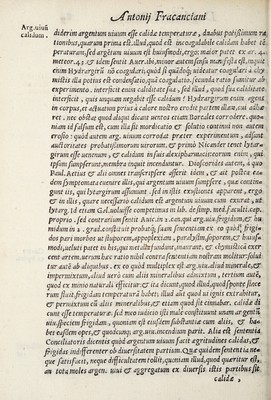 Antonij Fracanciani
Arg. uiuũ
calidum.
diderim argentum uiuum esse calidæ temperaturæ, duabus potissimum ra
tionibus, quarum prima est. illud, quod est incoagulabile calidam habet tẽ
peraturam, sed argẽtum uiuum est huiusmodi, ergo; maior patet ex 4.
meteor. 43 & idem sentit Auer. ibi, minor autem sensu manifesta est, nequit
enim Hydrargyrũ coagulari; quòd si
mistis illa potius est condensatio, quã coagulatio. secunda ratio sumitur ab
experimento. interficit enim caliditate sua, sed illud, quod sua caliditate
interficit, quis unquam negabit esse calidum? Hydrargyrum enim agens
in corpore, actuatum prius à calore nostro erodit partem illam, cui
tur. nec obstat quod aliqui dicunt uentos etiam Boreales corrodere. quo
niam id falsum est, cum illa sit mordicatio & soluta continui non autem
erosio: quòd autem arg. uiuum corrodat præter experimentum, assumo
auctoritates probatissimorum uirorum. & primò Nicander tenet hytar
girum esse uenenum, & calidum in suis alexipharmacis: eorum enim, qui
ipsum sumpserunt, membra inquit incenduntur. Dioscorides autem, à quo
Paul. Aetius & alij omnes transcripsere asserit idem, & ait postea ea-
dem symptomata euenire illis, qui argentum uiuum sumpsere, quæ contin-
gunt ijs, qui lytargirium assumunt. sed in istis exustiones apparent, ergo
& in illis, quare necessariò calidum est argentum uiuum cum exurat, ut
lytarg. id etiam Gal. uoluisse comperimus in lib. de simp. med. facult. cap.
proprio, sed contrarium sentit Auic. in 2. can. qui arg. uiu. frigidum, & hu-
midum in 2. grad. constituit. probatq; suam sententiam ex eo quòd frigi-
dos pari morbos ut stuporem, apoplexiam, paralysim, soporem, & huius-
modi, uelut patet in his, qui metallis student, inaurant, & speculorum exer
cent artem. uerùm hæc ratio nihil contra sententiam nostram molitur: solui-
tur autẽ ab aliquibus. ex eo quòd multiplex sit arg. uiu. aliud minerale, &
impermixtum, aliud uerò cum alijs mineralibus admixtum, tertium autẽ,
quod ex minio naturali efficitur, & ita dicunt, quod illud, quod sponte since-
rum fluit, frigidam temperaturã habet; illud autẽ quod ui ignis extrahitur,
& permixtum cũ alijs mineralibus, & etiam quod fit ex cinnabar. calidæ di
cunt esse temperaturæ. sed meo iudicio isti male constituunt unam argentũ
uiu. speciem frigidam, quoniam est eiusdem substantiæ cum alijs, & ha-
bet easdem opes, & quocunq; arg. uiu. incendium parit. Alia est sententia
Conciliatoris dicentis quòd argentum uiuum facit ægritudines calidas, &
frigidas indifferenter ob diuersitatem partium. Quæ quidem sententia ne-
que satisfacit, neque difficultatem tollit, quoniam illud, quod quæritur est,
an tota moles argen. uiui & aggregatum ex diuersis istis partibus sit
calidæ,